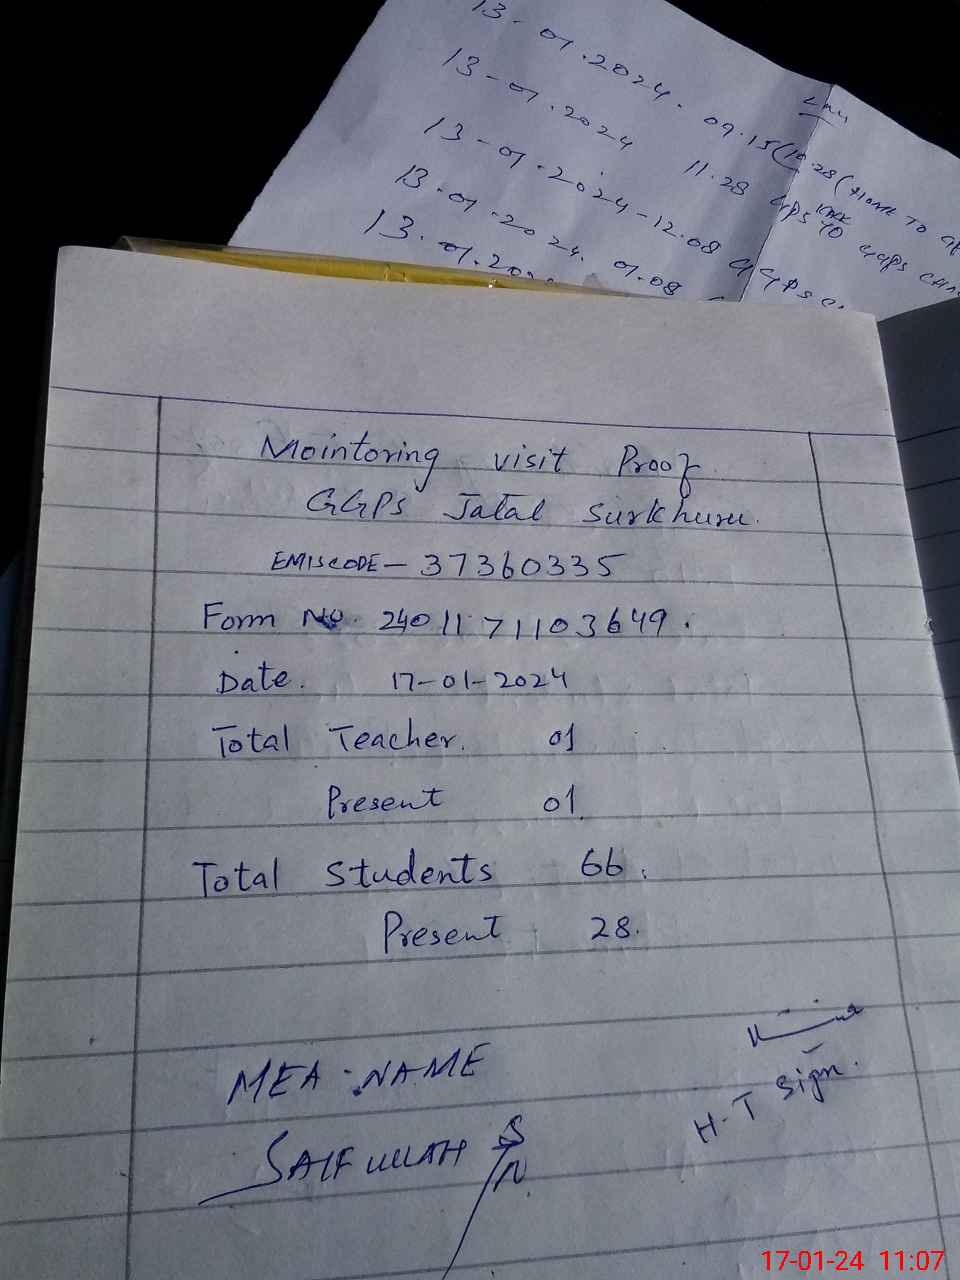 13-01.2024. 09.15(10.28(HOME TO
13-01.2024 11.28 GPS
13-01.2024-12.08 GGPS
13.01.2024. 01.08
13.01.202
Mointoring visit Proof
GGPS Jalal Surkhuru.
EMISCODE-37360335
Form No. 2401171103649.
Date. 17-01-2024
Total Teacher. 01
Present 01.
Total Students 66.
Present 28.
MEA.NAME
SAIFULLAH
H.T Sign.
17-01-24 11:07